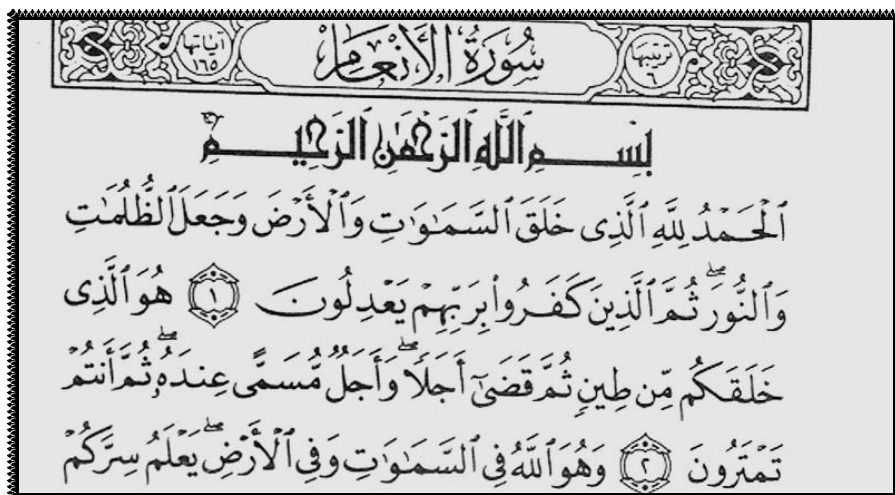 ترتيبها ٦ سُورَةُ الأَنْعَامِ آيَاتها ١٦٥
بِسْمِ ٱللَّهِ ٱلرَّحْمَٰنِ ٱلرَّحِيمِ
ٱلْحَمْدُ لِلَّهِ ٱلَّذِى خَلَقَ ٱلسَّمَٰوَٰتِ وَٱلْأَرْضَ وَجَعَلَ ٱلظُّلُمَٰتِ
وَٱلنُّورَ ۖ ثُمَّ ٱلَّذِينَ كَفَرُوا۟ بِرَبِّهِمْ يَعْدِلُونَ ١ هُوَ ٱلَّذِى
خَلَقَكُم مِّن طِينٍ ثُمَّ قَضَىٰٓ أَجَلًا ۖ وَأَجَلٌ مُّسَمًّى عِندَهُۥ ۖ ثُمَّ أَنتُمْ
تَمْتَرُونَ ٢ وَهُوَ ٱللَّهُ فِى ٱلسَّمَٰوَٰتِ وَفِى ٱلْأَرْضِ ۖ يَعْلَمُ سِرَّكُمْ